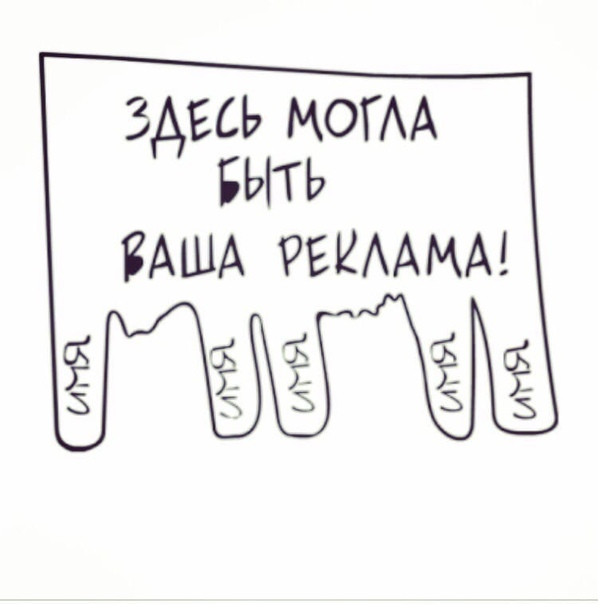 ЗДЕСЬ МОГЛА
БЫТЬ
ВАША РЕКЛАМА!
ИМЯ
ИМЯ
ИМЯ
ИМЯ
ИМЯ